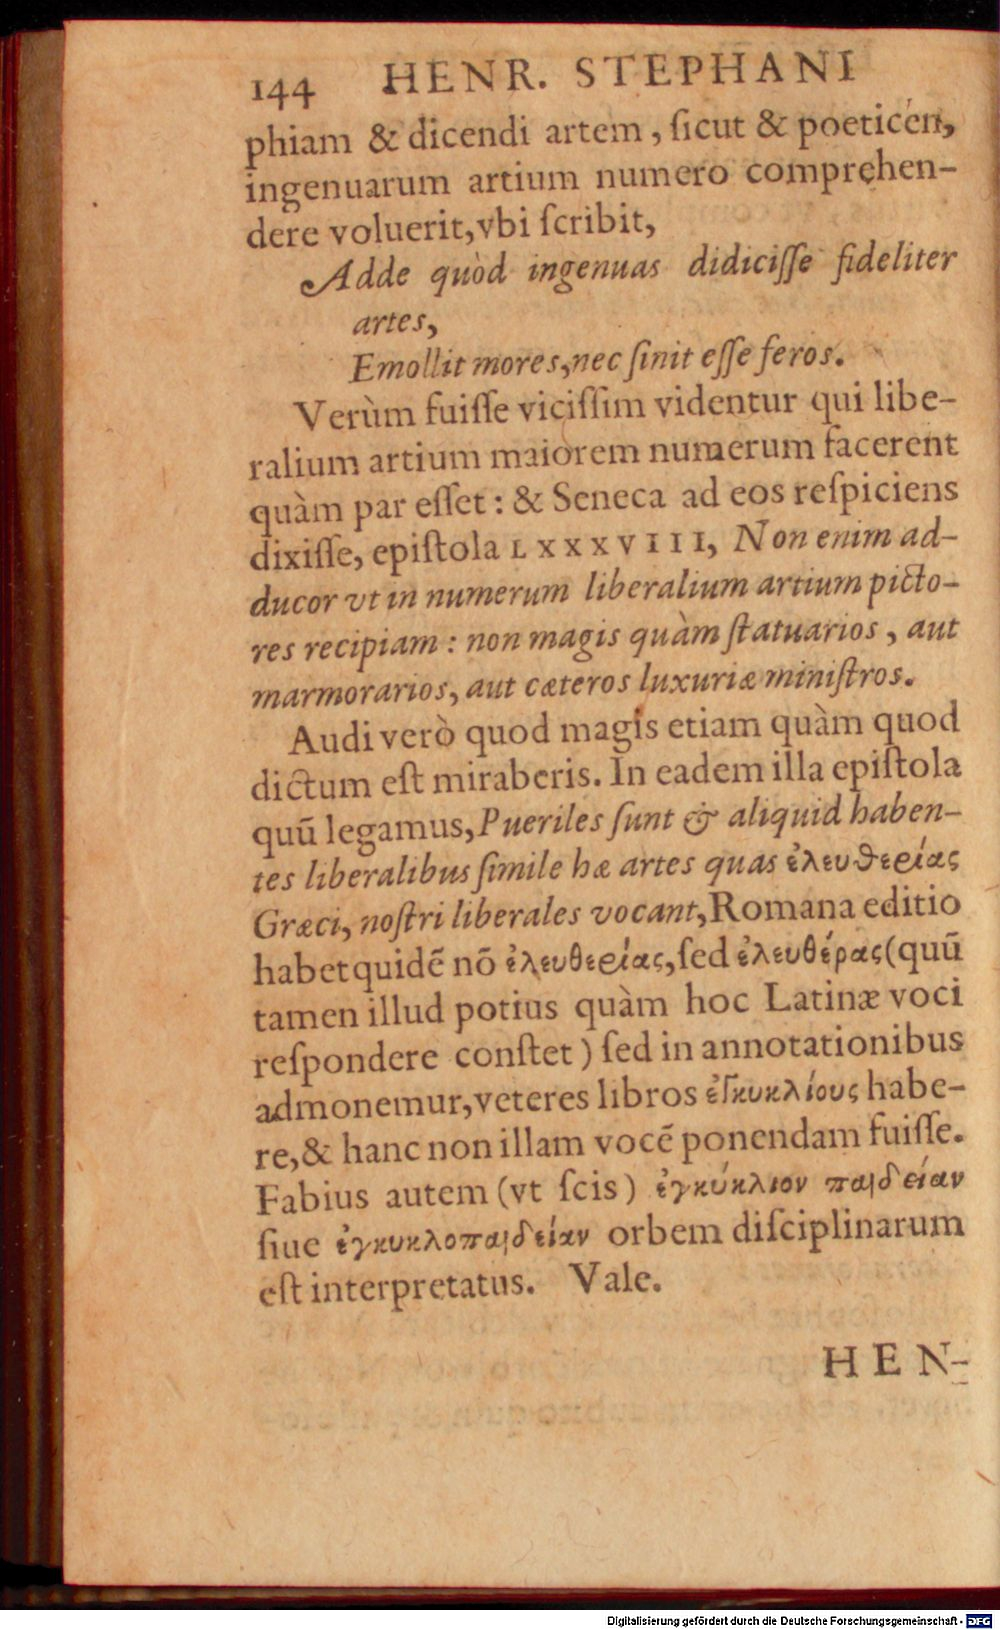 144 HENR. STEPHANI
phiam & dicendi artem, ſicut & poeticén,
ingenuarum artium numero comprehen-
dere voluerit, vbi ſcribit,
Adde quòd ingenuas didiciſſe fideliter
artes,
Emollit mores, nec ſinit eſſe feros.
Verùm fuiſſe viciſſim videntur qui libe-
ralium artium maiorem numerum facerent
quàm par eſſet: & Seneca ad eos reſpiciens
dixiſſe, epiſtola LXXXVIII, Non enim ad-
ducor vt in numerum liberalium artium picto-
res recipiam: non magis quàm ſtatuarios, aut
marmorarios, aut cæteros luxuriæ miniſtros.
Audi verò quod magis etiam quàm quod
dictum eſt miraberis. In eadem illa epiſtola
quū legamus, Pueriles ſunt & aliquid haben-
tes liberalibus ſimile hæ artes quas ἐλευθερίας
Græci, noſtri liberales vocant, Romana editio
habet quidē nō ἐλευθερίας, ſed ἐλευθέρας (quū
tamen illud potius quàm hoc Latinæ voci
reſpondere conſtet) ſed in annotationibus
admonemur, veteres libros ἐγκυκλίους habe-
re, & hanc non illam vocē ponendam fuiſſe.
Fabius autem (vt ſcis) ἐγκύκλιον παιδείαν
ſiue ἐγκυκλοπαιδείαν orbem diſciplinarum
eſt interpretatus. Vale.
HEN-
Digitalisierung gefördert durch die Deutsche Forschungsgemeinschaft - DFG